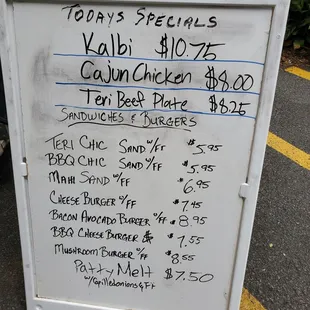 TODAYS SPECIALS
Kalbi $10.75
Cajun Chicken $8.00
Teri Beef Plate $8.25
SANDWICHES & BURGERS
TERI CHIC SAND W/FF $5.95
BBQ CHIC SAND W/FF $5.95
MAHI SAND W/FF $6.95
CHEESE BURGER W/FF $7.45
BACON AVOCADO BURGER W/FF $8.95
BBQ CHEESE BURGER $7.55
MUSHROOM BURGER W/FF $8.55
Patty Melt $7.50
W/Grilledonions & FF